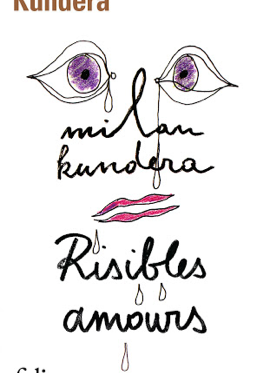 Kundera
milan
kundera
Risibles
amours